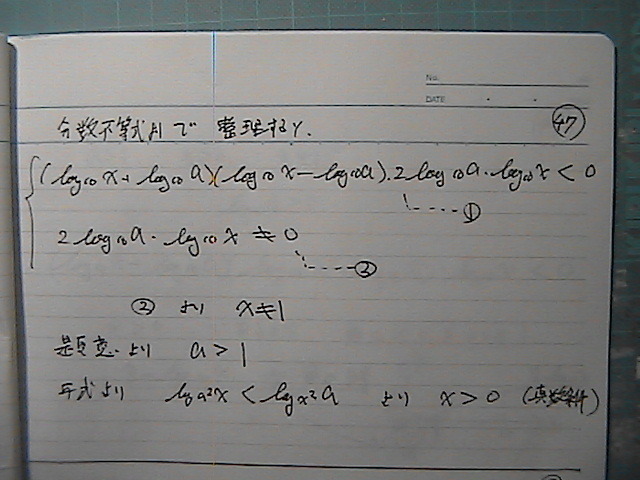 No.
DATE
分数不等式より で 整理すると.
47
(log₁₀x + log₁₀a)(log₁₀x − log₁₀a)·2log₁₀a·log₁₀x < 0
①
2log₁₀a · log₁₀x ≠ 0
②
② より x≠1
題意より a > 1
与式より log a²x < log x²a より x > 0 (真数条件)